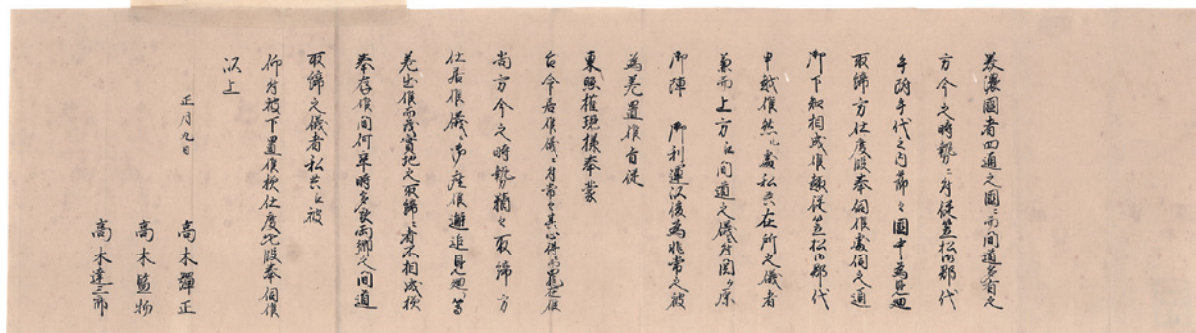 美濃国者四通之国ニ而間道多有之
方今之時勢ニ付従笠松御郡代
手附手代之内節々国中為見廻
取締方仕度段奉伺候処伺之通
御下知相成候趣従笠松御郡代
申越候然ル処私共在所之儀者
兼而上方江間道之儀ニ付関ヶ原
御陣 御利運以後為非常之被
為差置候旨従
東照権現様奉蒙
台命居候儀ニ付常々其心得ニ而罷在候
尚方今之時勢猶々取締方
仕居候儀ニ御座候邂逅見廻等
差出候而者実地之取締ニ者不相成候
奉存候間何卒時多良両郷之間道
取締之儀者私共江被
仰付被下置候様仕度此段奉伺候
以上
正月九日
高木弾正
高木監物
高木達三郎